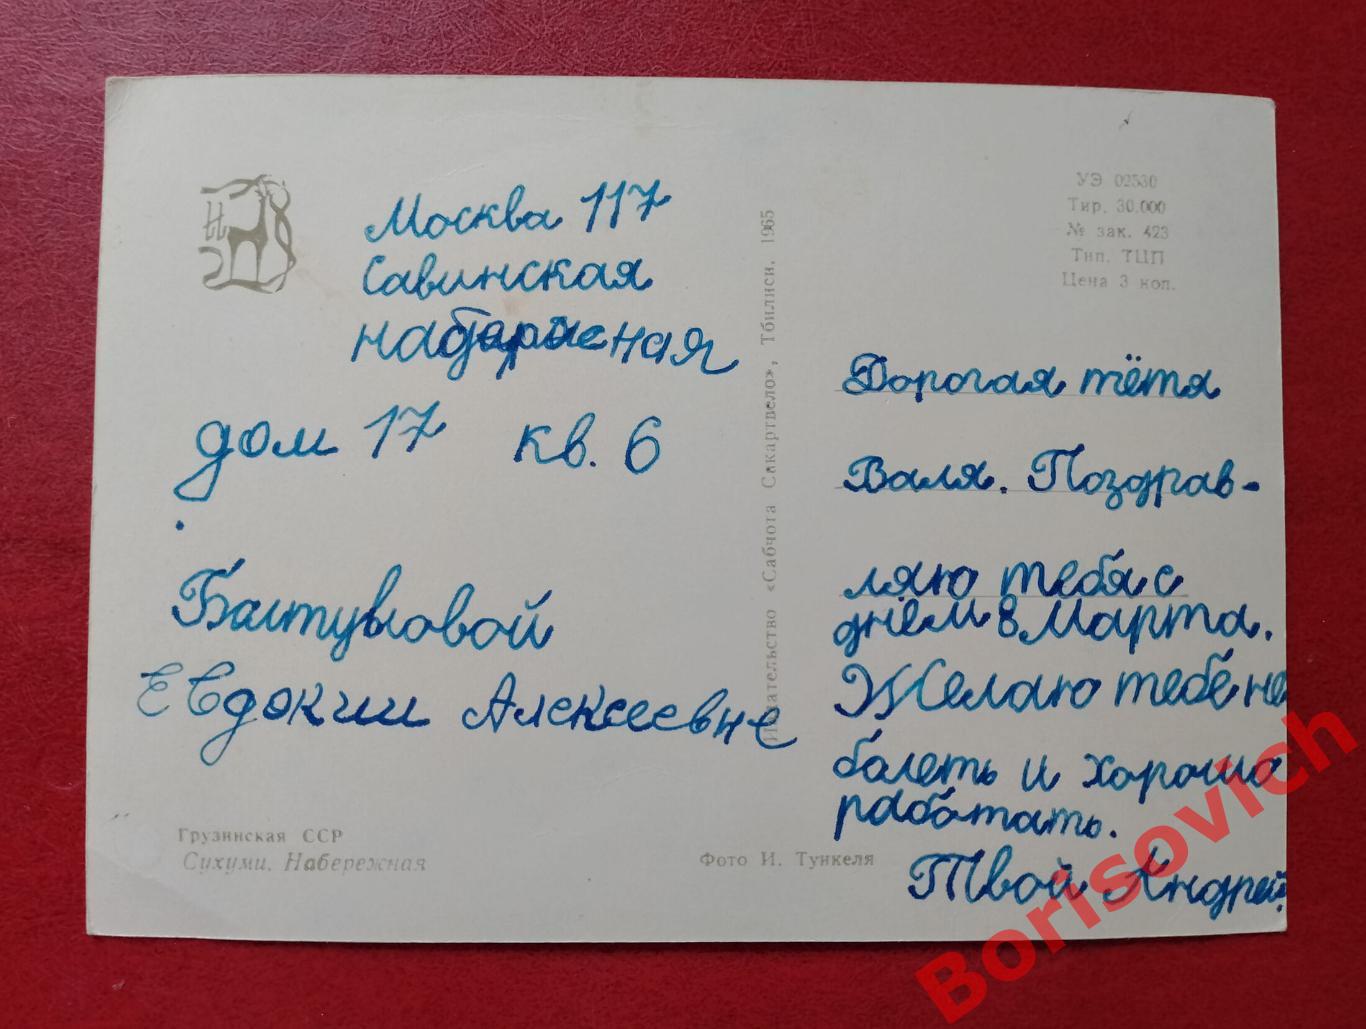 Москва 117
Савинская
набережная
дом 17 кв. 6
Евдокии Алексеевне
Грузинская ССР
Сухуми. Набережная
Фото И. Тункеля
Издательство «Сабчота Сакартвело», Тбилиси. 1965
УЭ 02530
Тир. 30.000
№ зак. 423
Тип. ТЦП
Цена 3 коп.
Дорогая тётя
Валя. Поздрав-
ляю тебя с
днём 8 Марта.
Желаю тебе не
болеть и хорошо
работать.
Твой Андрей.
Borisovich